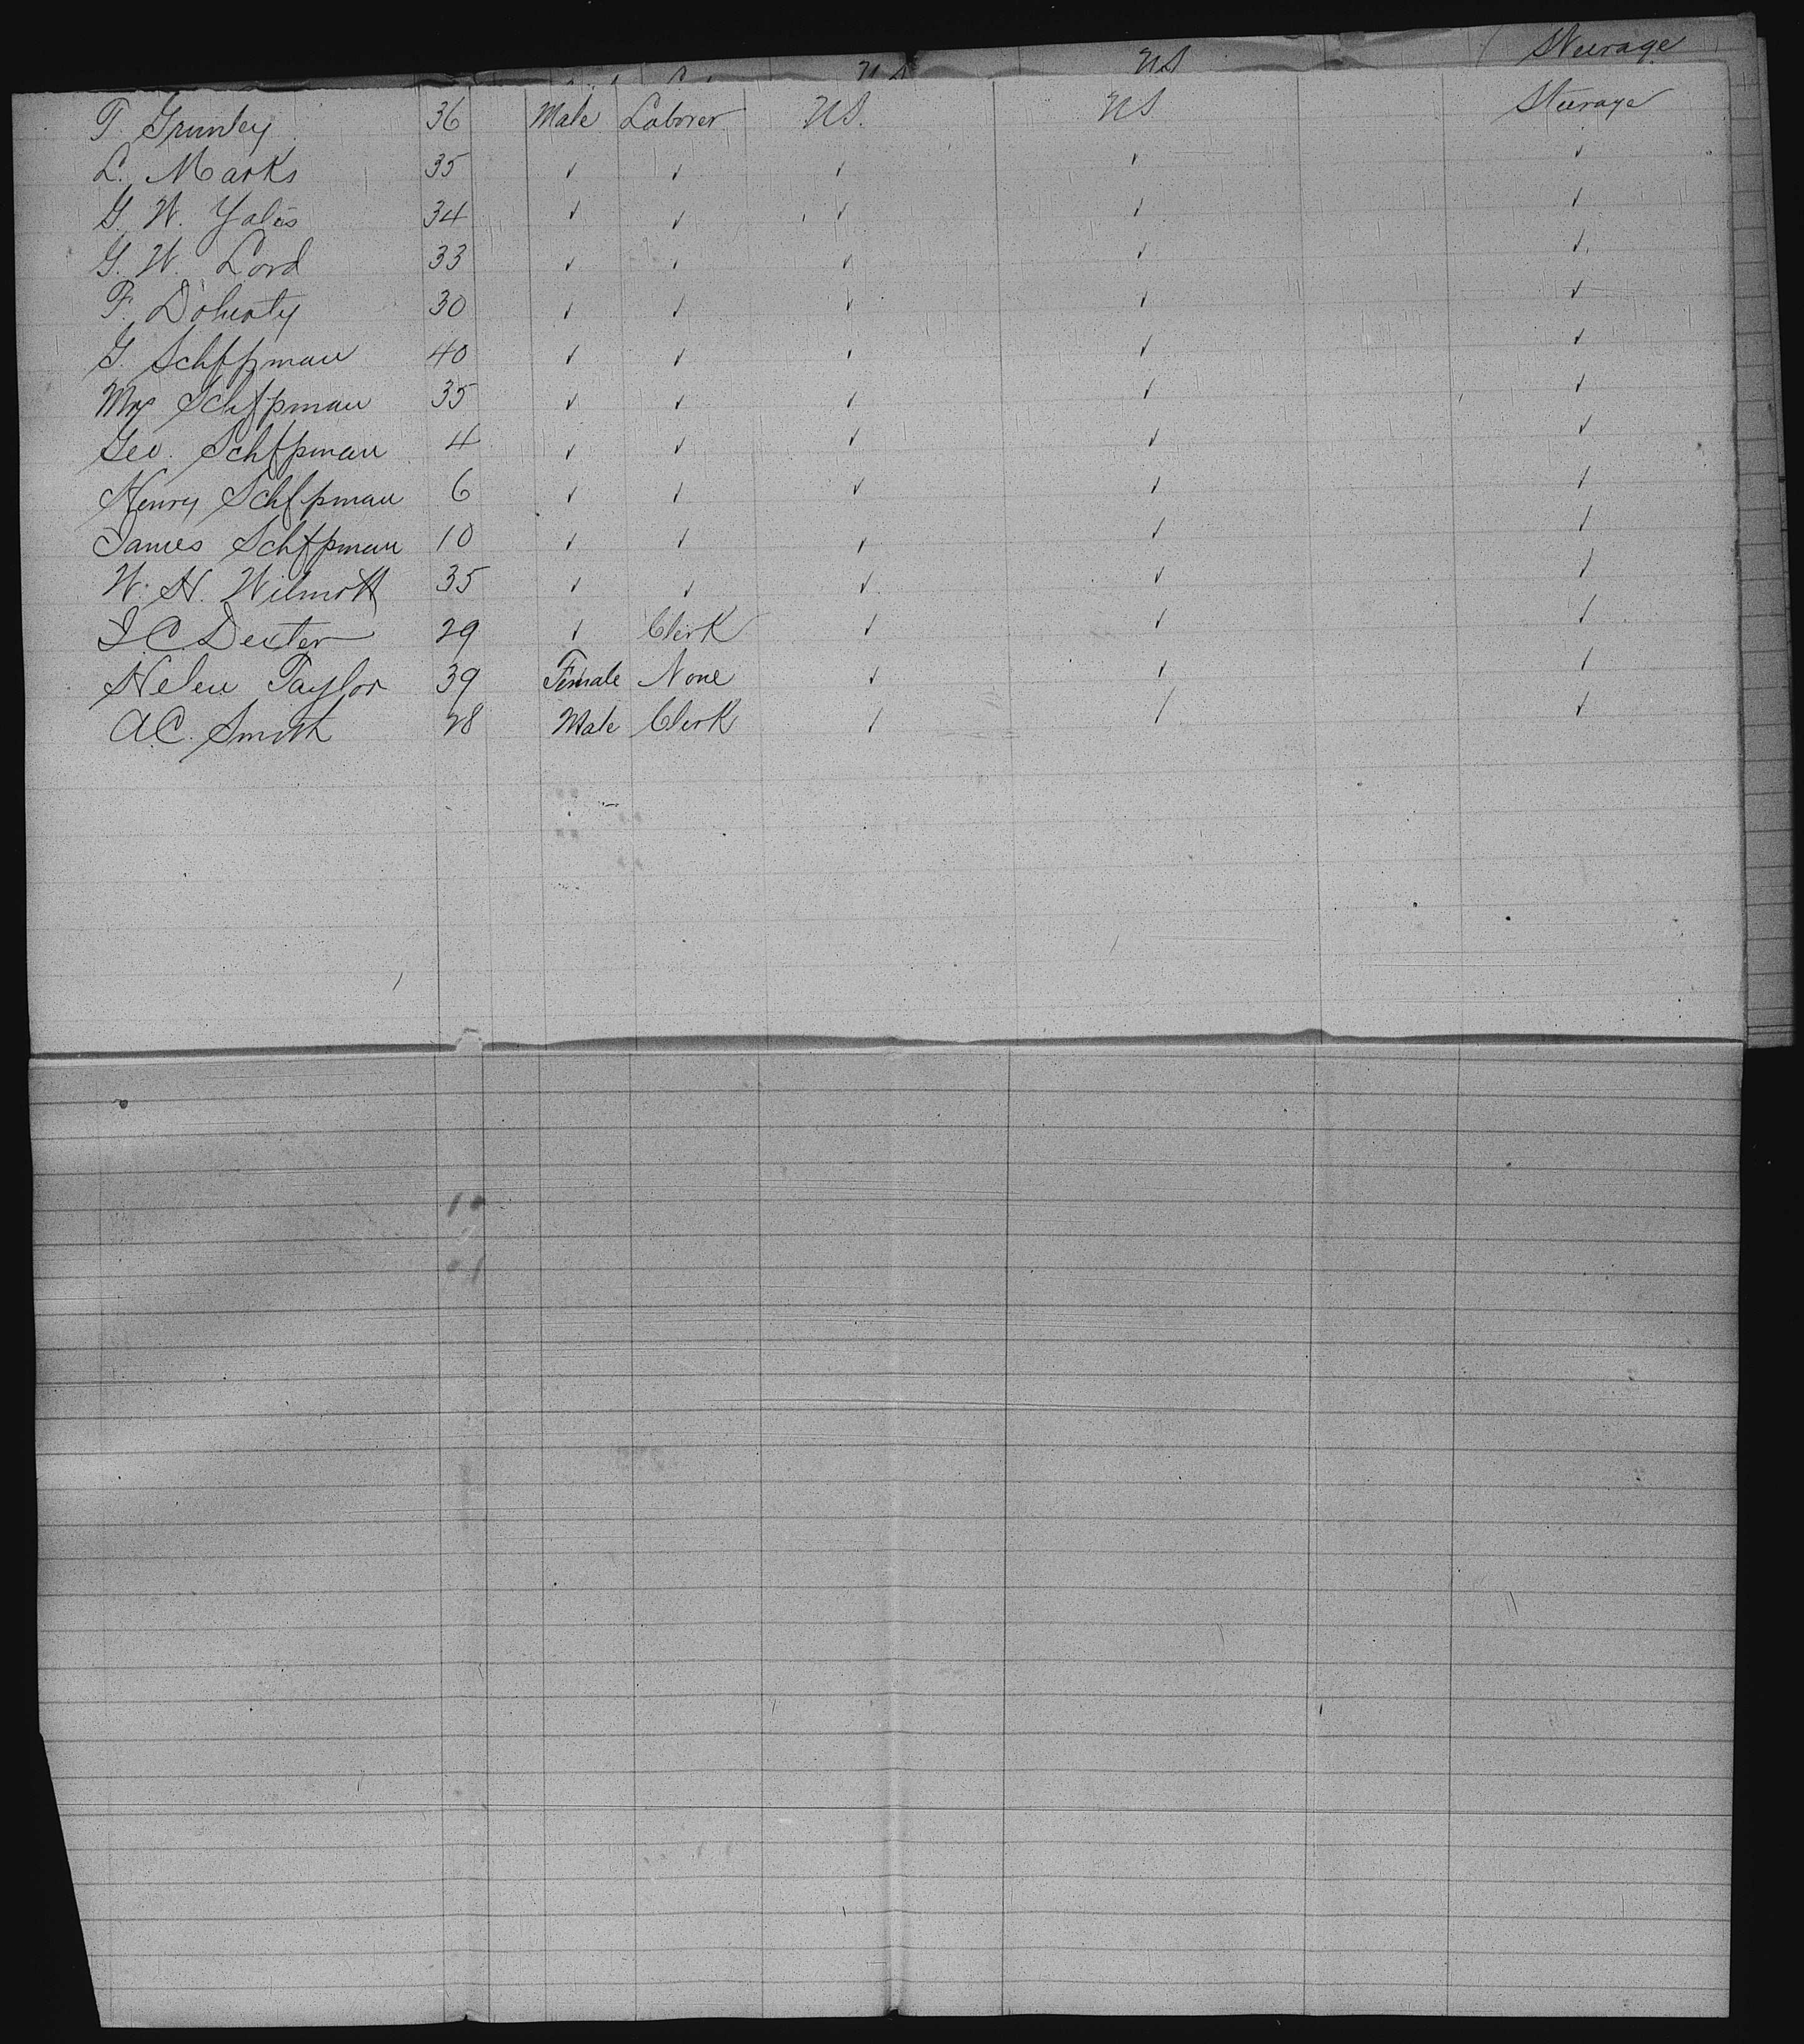 US Steerage
T. Grunley 36 Male Laborer US. US Steerage
L. Marks 35 ✓ ✓ ✓ ✓ ✓
G. W. Yates 34 ✓ ✓ ✓ ✓ ✓
G. W. Lord 33 ✓ ✓ ✓ ✓ ✓
F. Doherty 30 ✓ ✓ ✓ ✓ ✓
G. Schfpman 40 ✓ ✓ ✓ ✓ ✓
Mrs Schfpman 35 ✓ ✓ ✓ ✓ ✓
Geo. Schfpman 4 ✓ ✓ ✓ ✓ ✓
Henry Schfpman 6 ✓ ✓ ✓ ✓ ✓
James Schfpman 10 ✓ ✓ ✓ ✓ ✓
W. H. Wilmott 35 ✓ ✓ ✓ ✓ ✓
I. C. Dexter 29 ✓ Clerk ✓ ✓ ✓
Helen Taylor 39 Female None ✓ ✓ ✓
A.C. Smith 28 Male Clerk ✓ ✓ ✓